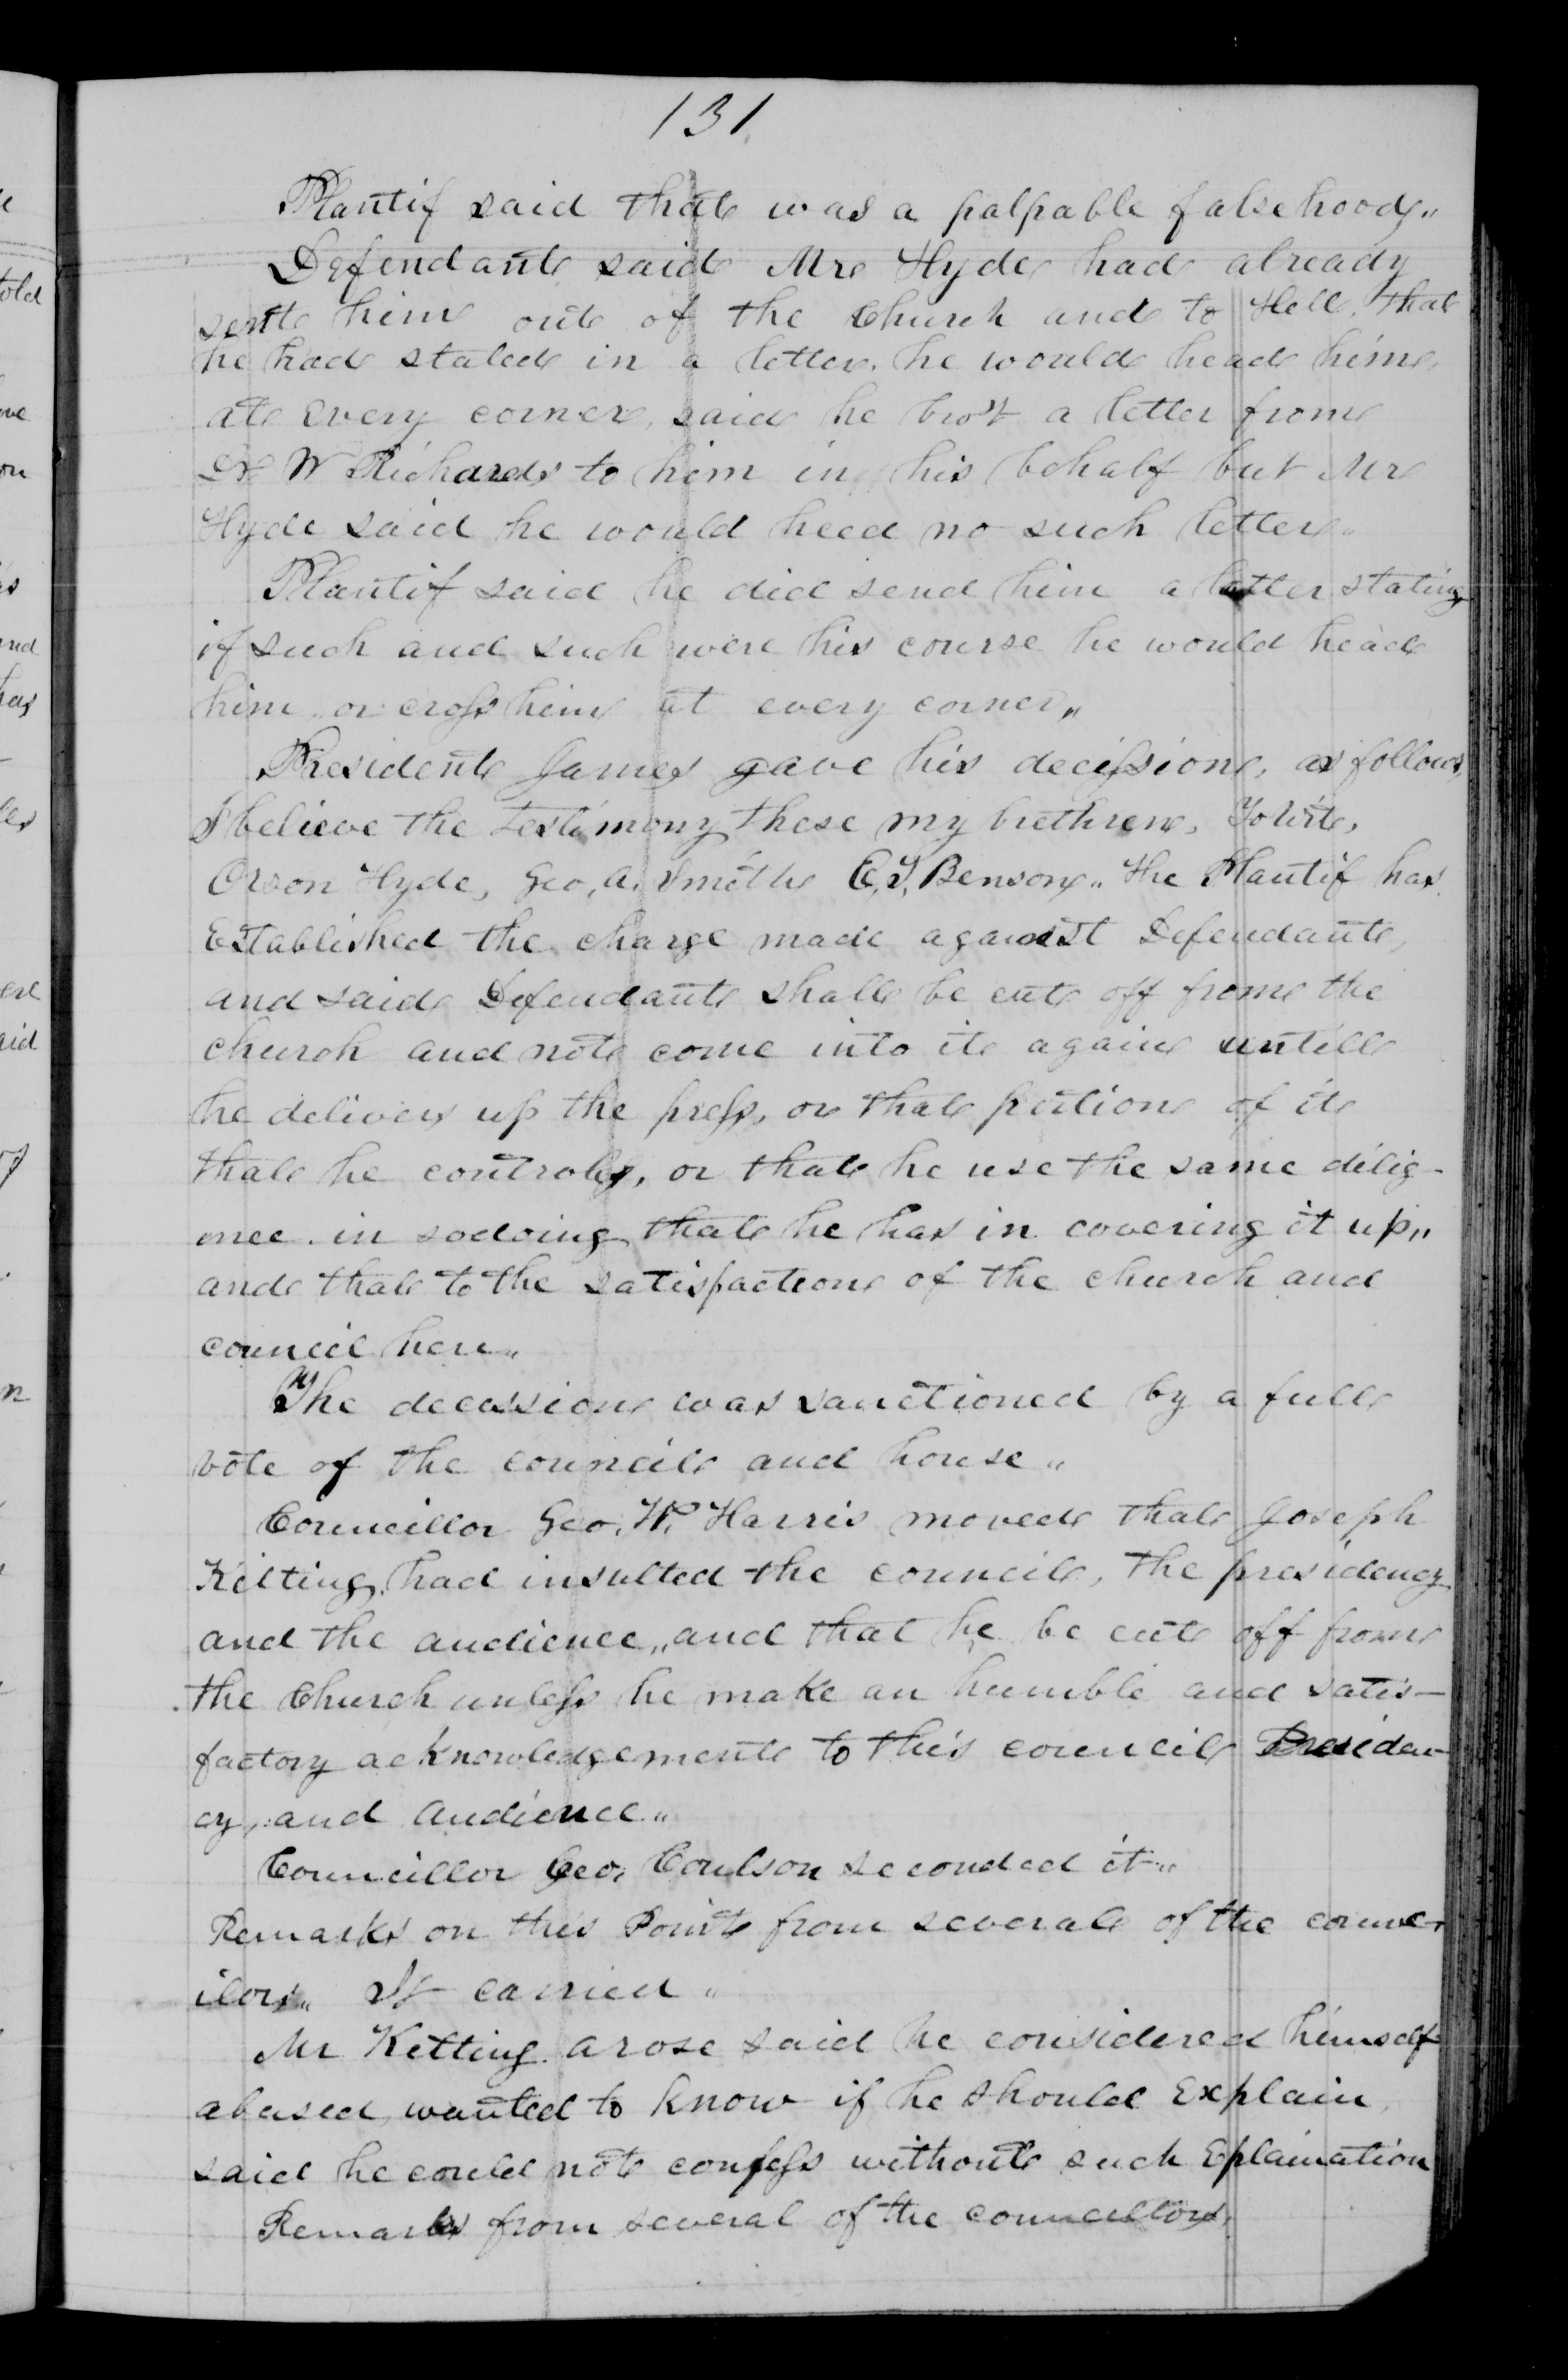 131
Plantif said that was a palpable falsehood,,
Defendant said Mr Hyde had already
sent him out of the Church and to Hell, that
he had stated in a letter, he would head him,
at Every corner, said he bro't a letter from
Dr W Richards to him in his behalf but Mr
Hyde said he would heed no such letter,,
Plantif said he did send him a letter stating
if such and such were his course he would head
him or cross him at every corner,,
President James gave his decission, as follows,
I believe the testimony these my brethren, Towit,
Orson Hyde, Geo, A, Smith E, T, Benson,, the Plantif has
Established the charge made against Defendant,
and said Defendant shall be cut off from the
church and not come into it again untill
he delivers up the press, or that portion of it
that he controls, or that he use the same dilig-
ence in sodoing that he has in covering it up,,
and that to the satisfaction of the church and
council here,,
The decission was sanctioned by a full
vote of the council and house,,
Councillor Geo, W, Harris moved that Joseph
Kelting, had insulted the council, the presidency
and the audience,, and that he be cut off from
the Church unless he make an humble and satis-
factory acknowledgement to this council Presiden-
cy, and Audience,,
Councillor Geo, Coulson seconded it,,
Remarks on this Point from several of the counc-
ilors,, It carried,,
Mr Kelting arose said he considered himself
abused, wanted to know if he should Explain,
said he could not confess without such Eplaination
Remarks from several of the councillors,
told
ove
on
as
and
has
les
ere
aid
of
n